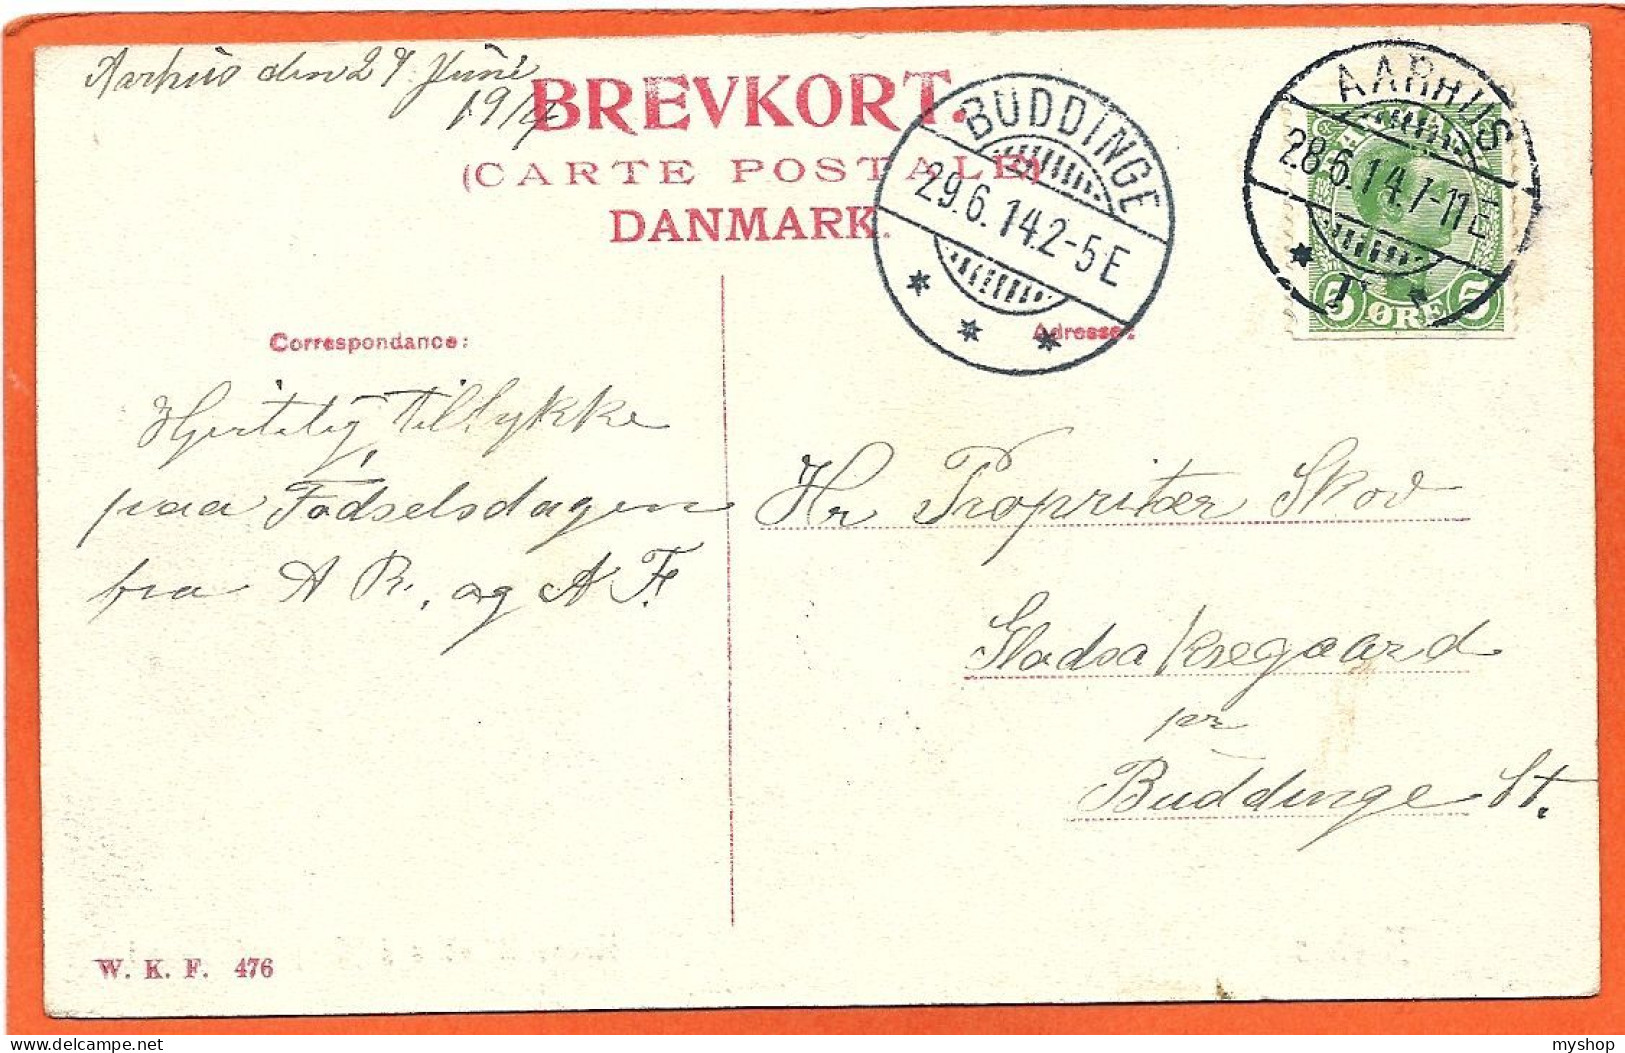 Aarhus den 27 Juni
1914
BREVKORT.
(CARTE POSTALE)
DANMARK.
BUDDINGE
29.6.14.2-5E
AARHUS
28.6.14.7-11E
5 ØRE 5
Correspondance:
Adresse:
Hjertelig Tillykke
paa Fødselsdagen
fra A R. og A F.
Hr Propritær Skov
Gladsakregaard
pr
Buddinge St.
W. K. F. 476
delcampe.net
myshop